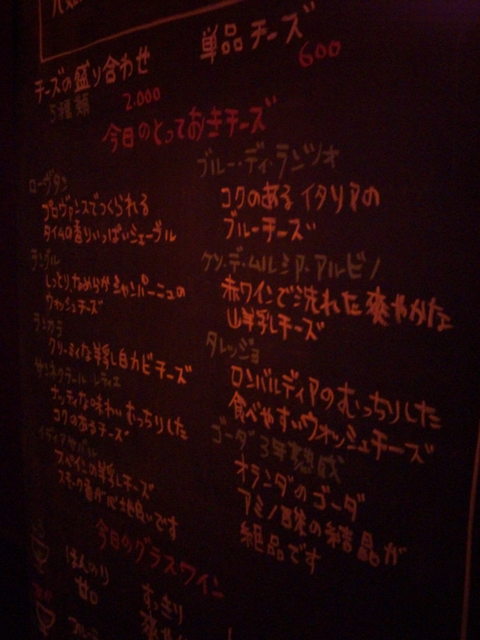 チーズの盛り合わせ
5種類 2.000
単品チーズ
600
今日のとっておきチーズ
ローヴタン
プロヴァンスでつくられる
タイムの香りいっぱいシェーブル
ラングル
しっとりなめらかシャンパーニュの
ウォッシュチーズ
クリーミィな羊乳白カビチーズ
サンネクテール・レティエ
ナッティな味わいむっちりした
コクのあるチーズ
イディアサバル
スペインの羊乳チーズ
スモーク香が心地良いです
ブルー・ディ・ランジォ
コクのある イタリアの
ブルーチーズ
ケソ・デ・ムルシア・アル・ビノ
赤ワインで洗れた爽やかな
山羊乳チーズ
タレッジョ
ロンバルディアのむっちりした
食べやすいウォッシュチーズ
ゴーダ 3年熟成
オランダのゴーダ
アミノ酸の結晶が
絶品です
今日のグラスワイン
ほんのり
甘口
すっきり